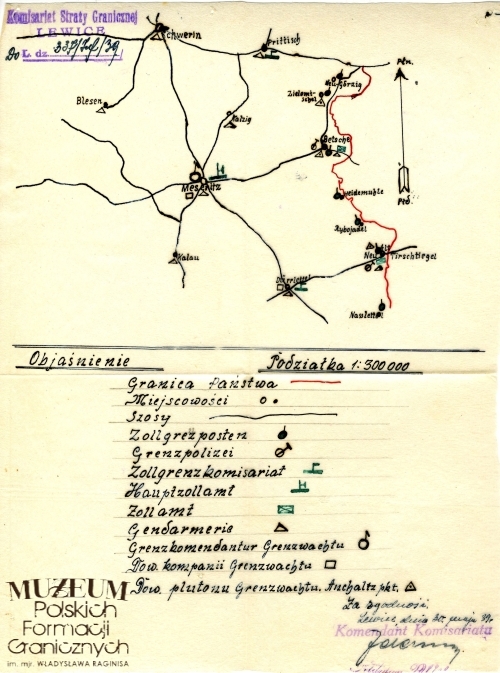 Komisariat Straży Granicznej
LEWICE
L. dz. 337/Inf/39
Schwerin
Prittisch
Płn.
Blesen
Kalzig
Betsche
Meseritz
Heidemühle
Rybojadel
Kalau
Alt
Neu Tirschtiegel
Dürrlettel
Nasslettel
Płd.
Objaśnienie Podziałka 1:300000
Granica Państwa
Miejscowości
Szosy
Zollgrezposten
Grenzpolizei
Zollgrenzkomisariat
Hauptzollamt
Zollamt
Gendarmerie
Grenzkomendantur Grenzwachtu
Dow. kompanii Grenzwachtu
Dow. plutonu Grenzwachtu. Anhaltz pkt.
Za zgodność.
Lewice, dnia 30. maja 39.
Komendant Komisariatu
MUZEUM
Polskich
Formacji
Granicznych
im. mjr. WŁADYSŁAWA RAGINISA